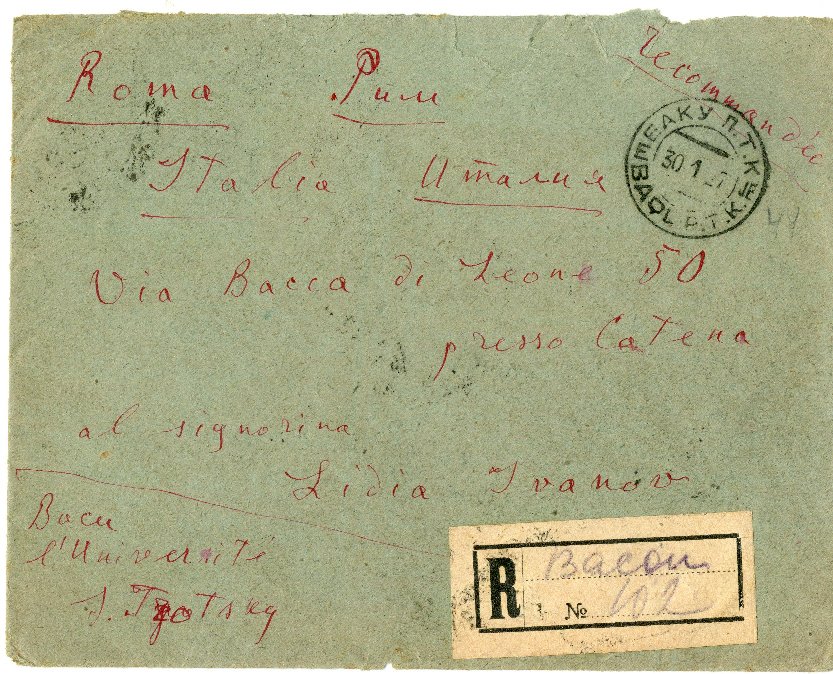 recommandée
Roma Рим
Italia Италия
БАКУ П.Т.К.
30 1 27
BAQЬ P.T.K.
Via Bacca di Leone 50
presso Catena
al signorina
Lidia Ivanov
Bacu
l'Université
S. Trotsky
R Bacou
№ 102